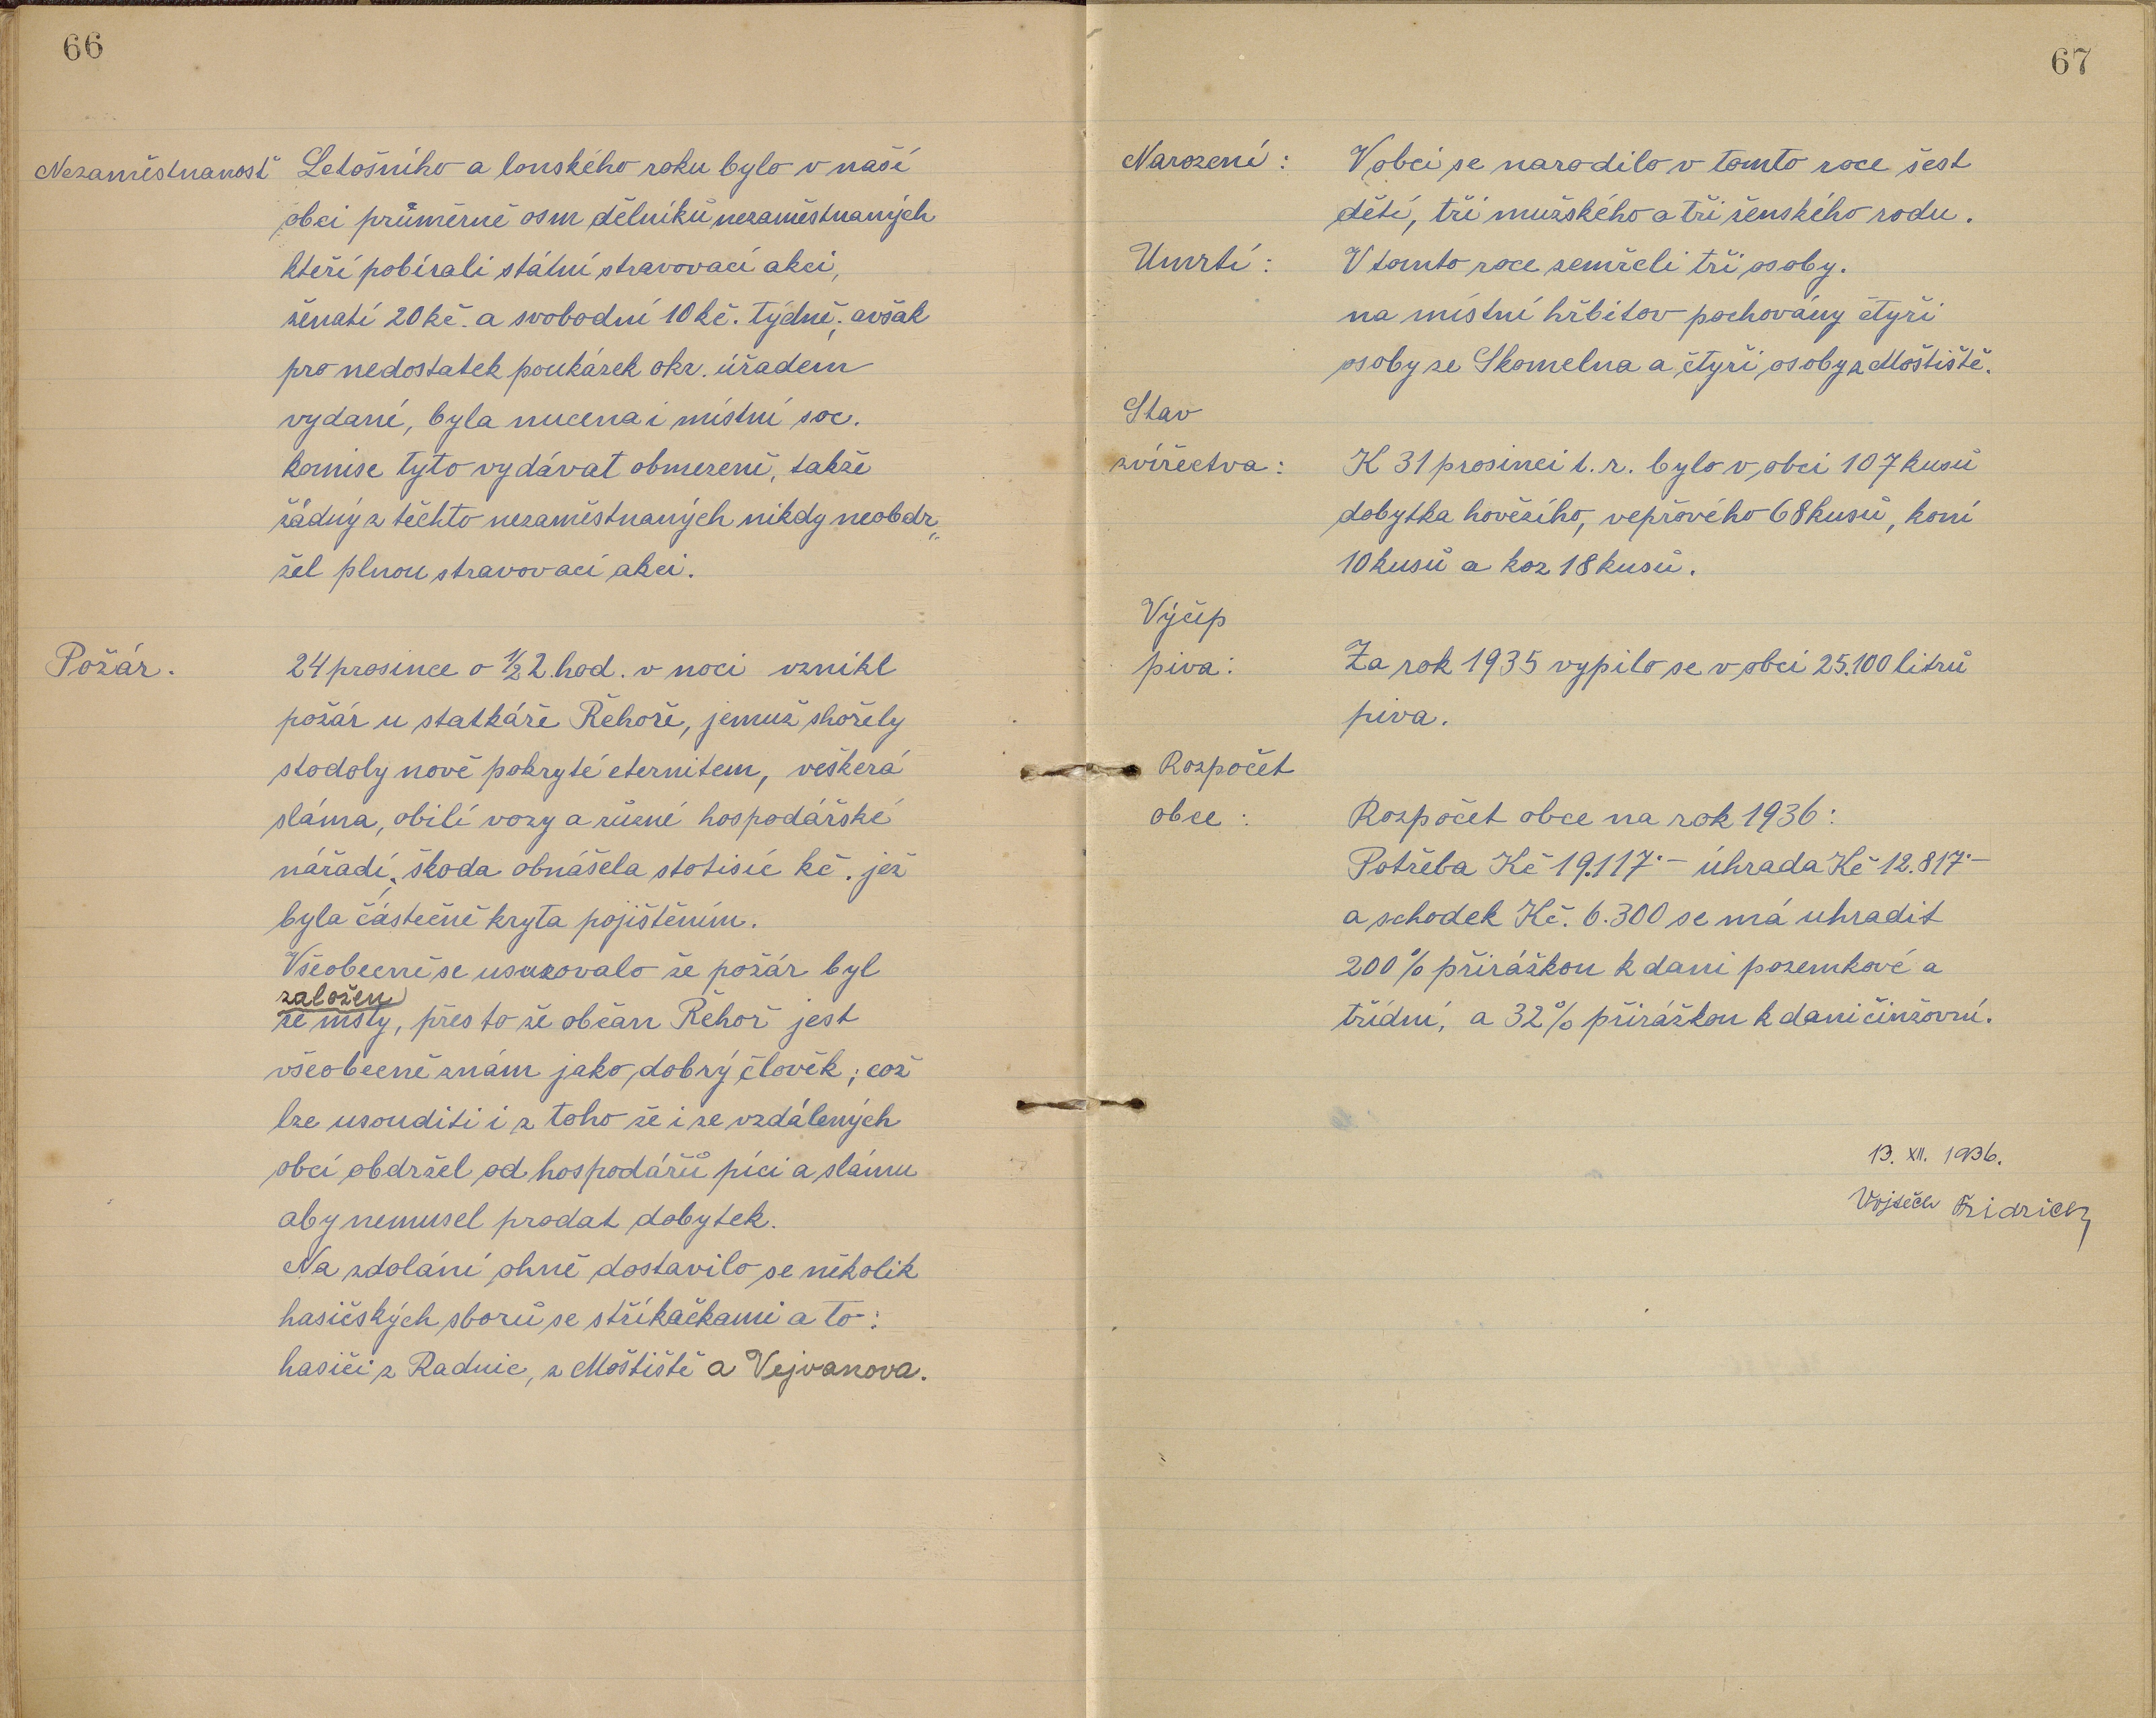 66
Nezaměstnanost Letošního a lonského roku bylo v naší
obci průměrně osm dělníků nezaměstnaných
kteří pobírali státní stravovací akci,
ženatí 20 kč. a svobodní 10 kč. týdně; avšak
pro nedostatek poukázek okr. úřadem
vydané, byla nucena i místní soc.
komise tyto vydávat obmezeně, takže
žádný z těchto nezaměstnaných nikdy neobdr„
žel plnou stravovací akci.
Požár. 24 prosince o ½ 2. hod. v noci vznikl
požár u statkáře Řehoře, jemuž shořely
stodoly nově pokryté eternitem, veškerá
sláma, obilí vozy a různé hospodářské
nářadí, škoda obnášela stotisíc kč. jež
byla částečně kryta pojištěním.
Všeobecně se usuzovalo že požár byl
založen
ze msty, přes to že občan Řehoř jest
všeobecně znám jako dobrý člověk; což
lze usouditi i z toho že i ze vzdálených
obcí obdržel od hospodářů píci a slámu
aby nemusel prodat dobytek.
Na zdolání ohně dostavilo se několik
hasičských sborů se stříkačkami a to:
hasiči z Radnic, z Moštiště a Vejvanova.
67
Narození: V obci se narodilo v tomto roce šest
dětí, tři mužského a tři ženského rodu.
Umrtí: V tomto roce zemřeli tři osoby.
na místní hřbitov pochovány čtyři
osoby ze Skomelna a čtyři osoby z Moštiště.
Stav
zvířectva: K 31 prosinci t. r. bylo v obci 107 kusů
dobytka hovězího, vepřového 68 kusů, koní
10 kusů a koz 18 kusů.
Výčep
piva: Za rok 1935 vypilo se v obci 25.100 litrů
piva.
Rozpočet
obce: Rozpočet obce na rok 1936:
Potřeba Kč 19.117·– úhrada Kč 12.817·–
a schodek Kč. 6.300 se má uhradit
200% přirážkou k dani pozemkové a
třídní, a 32% přirážkou k dani činžovní.
13. XII. 1936.
Vojtěch Fridrich